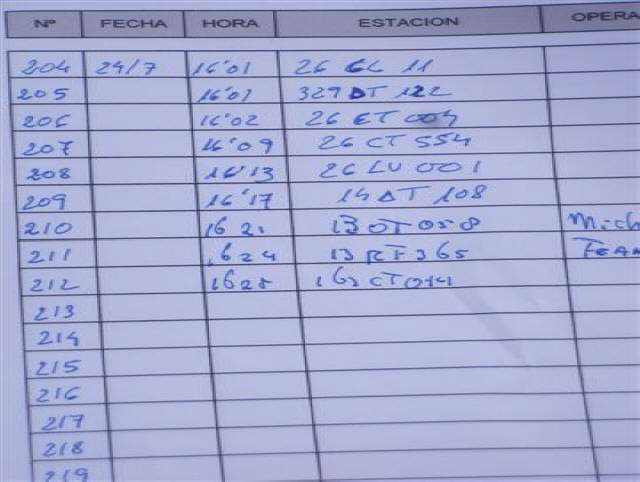 Nº FECHA HORA ESTACION OPERA
204 24/7 16'01 26 GL 11
205 16'01 329 DT 122
206 16'02 26 ET 004
207 16'09 26 CT 554
208 16'13 26 LU 001
209 16'17 14 DT 108
210 16 21 13 OT 058 Mich
211 1624 13 RF 365 FEAN
212 1625 162 CT 014
213
214
215
216
217
218
219